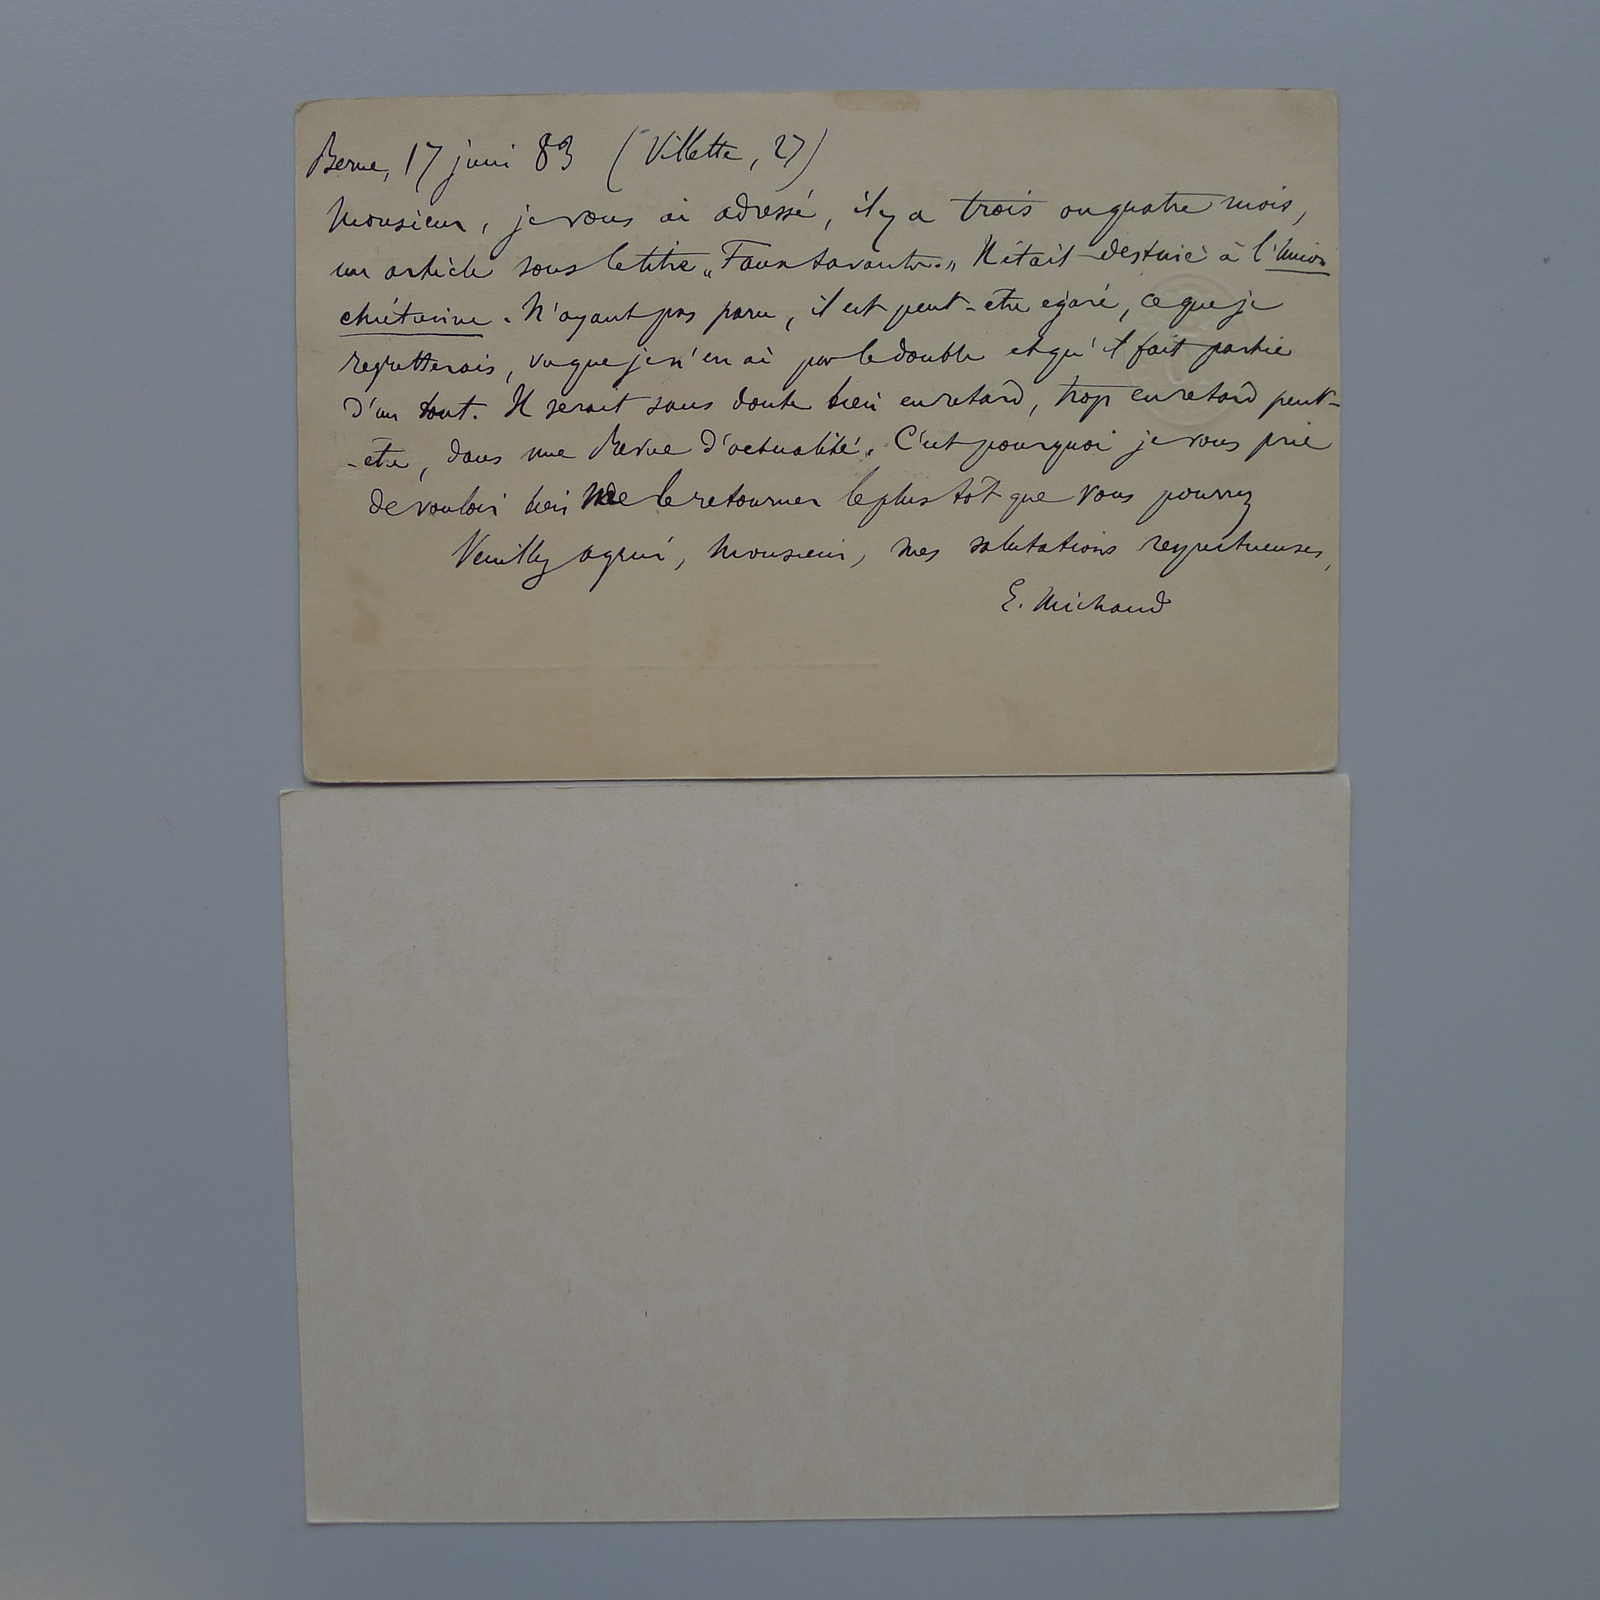 Berne, 17 juin 83 (Villette, 27)
Monsieur, je vous ai adressé, il y a trois ou quatre mois,
un article sous le titre „Faux savants.„ Il était destiné à l'Union
chrétienne. N'ayant pas paru, il est peut-etre egaré, ce que je
regretterais, vu que je n'en ai pas le double et qu'il fait partie
d'un tout. Il serait sans doute bien en retard, trop en retard peut-
-etre, dans une Revue d'actualité. C'est pourquoi je vous prie
de vouloir bien me le retourner le plus tôt que vous pourrez
Veuillez agréer, Monsieur, mes salutations respectueuses,
E. Michaud